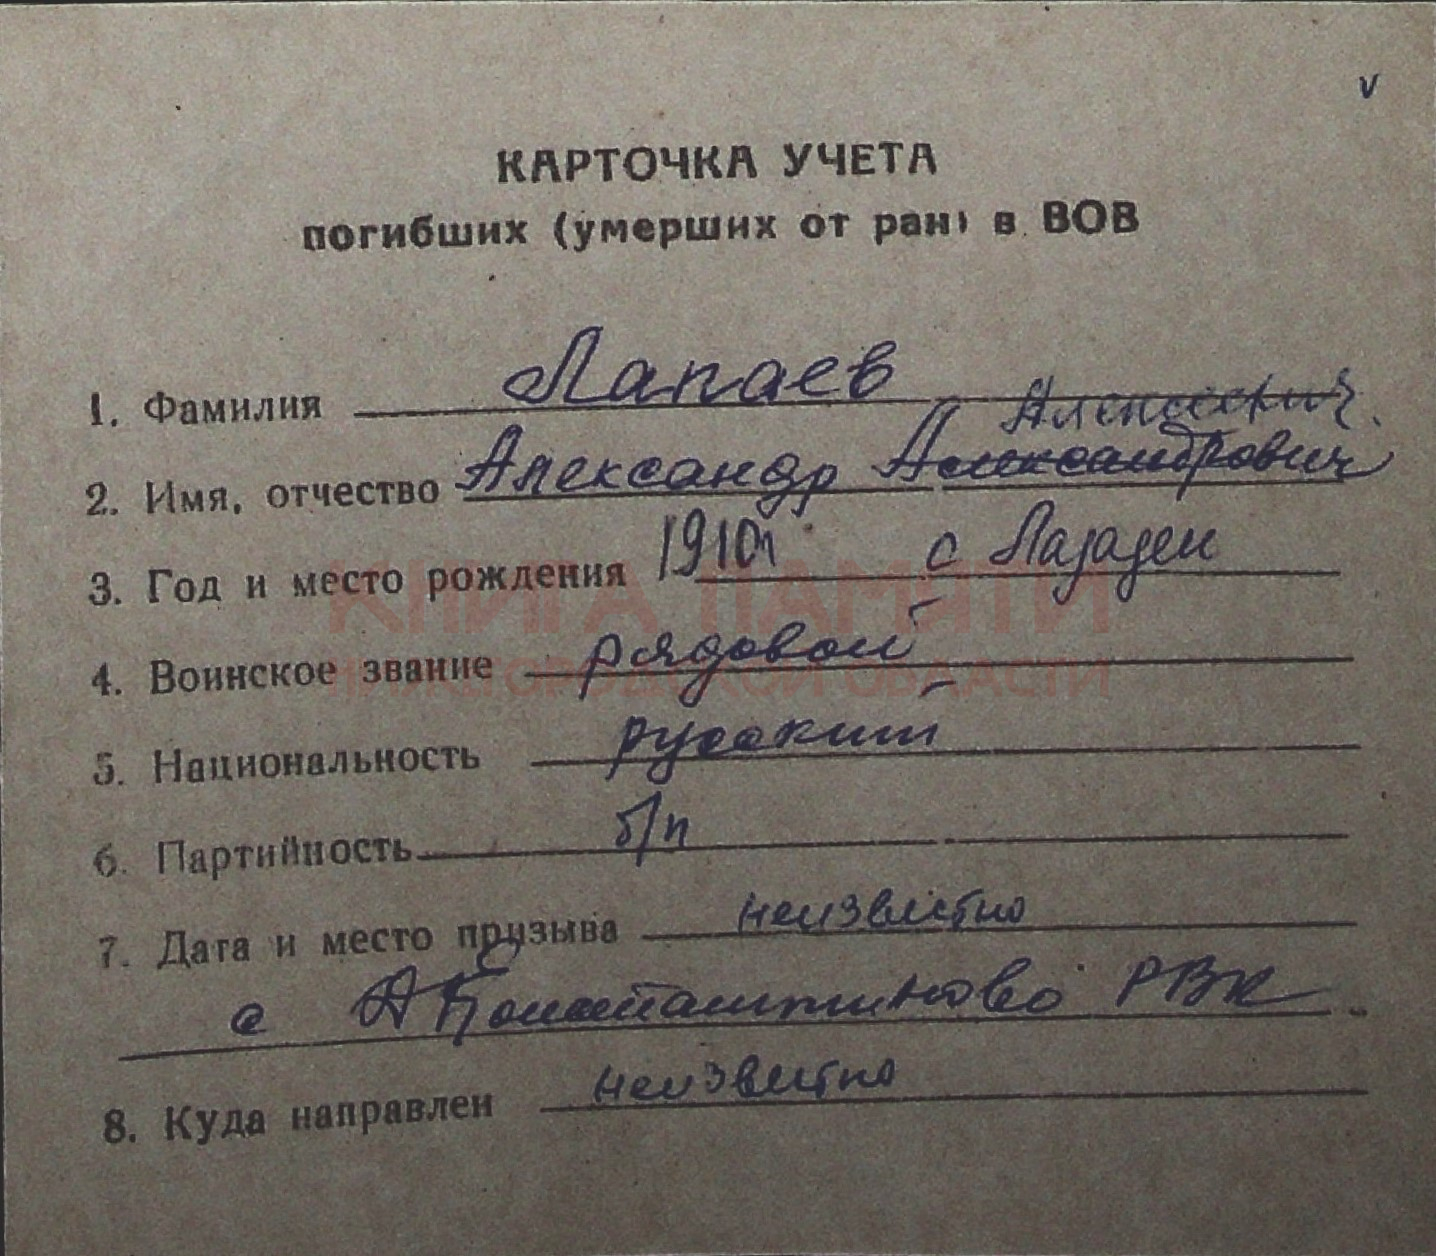 v
КАРТОЧКА УЧЕТА
погибших (умерших от ран) в ВОВ
1. Фамилия Лапаев
Алексеевич.
2. Имя, отчество Александр Александрович
3. Год и место рождения 1910г с
КНИГА ПАМЯТИ
4. Воинское звание рядовой
НИЖЕГОРОДСКОЙ ОБЛАСТИ
5. Национальность русский
6. Партийность б/п
7. Дата и место призыва неизвестно
Константиново РВК
8. Куда направлен неизвестно